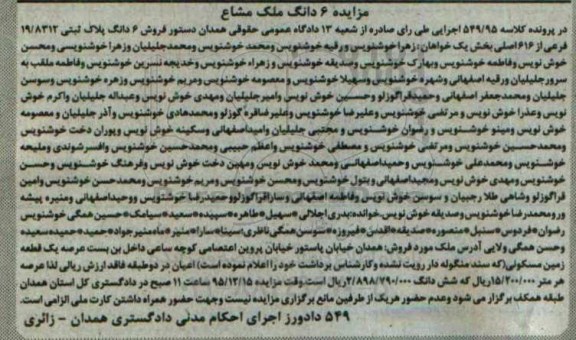 مزایده ۶ دانگ ملک مشاع
در پرونده کلاسه ۵۴۹/۹۵ اجرایی طی رای صادره از شعبه ۱۳ دادگاه عمومی حقوقی همدان دستور فروش ۶ دانگ پلاک ثبتی ۱۹/۸۳۱۲
فرعی از ۶۱۶ اصلی بخش یک خواهان: زهرا خوشنویس و رقیه خوشنویس ومحمد خوشنویس ومحمدجلیلیان وزهرا خوشنویسی ومحسن
خوش نویس وفاطمه خوشنویس وبهارک خوشنویس وصدیقه خوشنویس و زهراء خوشنویس وخدیجه نسرین خوشنویس وفاطمه ملقب به
سرورجلیلیان ورقیه اصفهانی وشهره خوشنویس وسهیلا خوشنویس و معصومه خوشنویس ومریم خوشنویس وزهره خوشنویس وسوسن
جلیلیان ومحمدجعفر اصفهانی وحمیدقراگوزلو وحسین خوش نویس وامیرجلیلیان ومهدی خوش نویس وعبداله جلیلیان واکرم خوش
نویس وعذرا خوش نویس و مرتضی خوشنویس وعلیرضا خوشنویس وعلیرضاقره گوزلو ومحمدهادی خوشنویس وآذر جلیلیان و معصومه
خوش نویس ومینو خوشنویس و رضوان خوشنویس و مجتبی جلیلیان وامیداصفهانی وسکینه خوش نویس وپوران دخت خوشنویس
ومحمدحسین خوشنویس ومرتضی خوشنویس و مصطفی خوشنویس واعظم حبیبی ومحمدحسین خوشنویس وافسرشوندی وملیحه
خوشنویس ومحمدعلی خوشنویس وحمیداصفهانی ومحمد خوش نویس ومهین دخت خوش نویس وفرهنگ خوشنویس وحسن
خوشنویس ومهدی خوش نویس ومجیداصفهانی وبتول خوشنویس ومحسن خوشنویس ومریم خوشنویس ومحمدحسن خوشنویس وامین
قراگوزلو وشاهی طلا رجبیان و سوسن خوش نویس وفاطمه اصفهانی وساراقراگوزلو وحمیدرضا خوشنویس ووحیداصفهانی ومنیره پیشه
ور ومحمدرضا خوشنویس وصدیقه خوش نویس.خوانده:بدری اجلالی*سهیل*طاهره*سپیده*سعید*سیامک*حسین همگی خوشنویس
رضوان*فردوس*سنبل*منصوره*صدیقه*اقدس*فیروزه*سوسن همگی ناظری،سینا*سارا*منیر*ماه منیرجواد*حمید*حمیده*سعیده
وحسن همگی ولایی آدرس ملک مورد فروش: همدان خیابان پاستور خیابان پروین اعتصامی کوچه ساعی داخل بن بست عرصه یک قطعه
زمین مسکونی(که سند منگوله دار رویت نشده وکارشناس برداشت خود را اعلام نموده است) اعیان در دوطبقه فاقد ارزش ریالی لذا عرصه
هر متر ۱۵/۲۰۰/۰۰۰ریال که شش دانگ ۲/۸۹۸/۷۹۰/۰۰۰ریال است.وقت مزایده ۹۵/۱۲/۱۵ ساعت ۱۱ صبح در دادگستری کل استان همدان
طبقه همکف برگزار می شود وعدم حضور هریک از طرفین مانع برگزاری مزایده نیست وجهت حضور همراه داشتن کارت ملی الزامی است.
۵۴۹ دادورز اجرای احکام مدنی دادگستری همدان - زائری